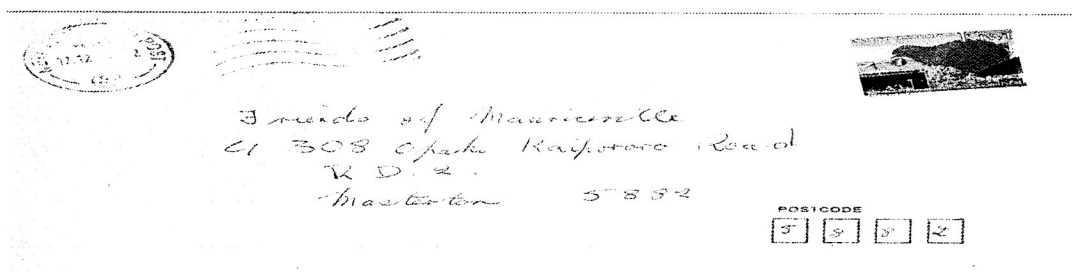 17.12
Friends of Mauriceville
C/ 308 Opaki Kaiparoro Road
R D. 2.
Masterton 5882
POSTCODE
5 8 8 2